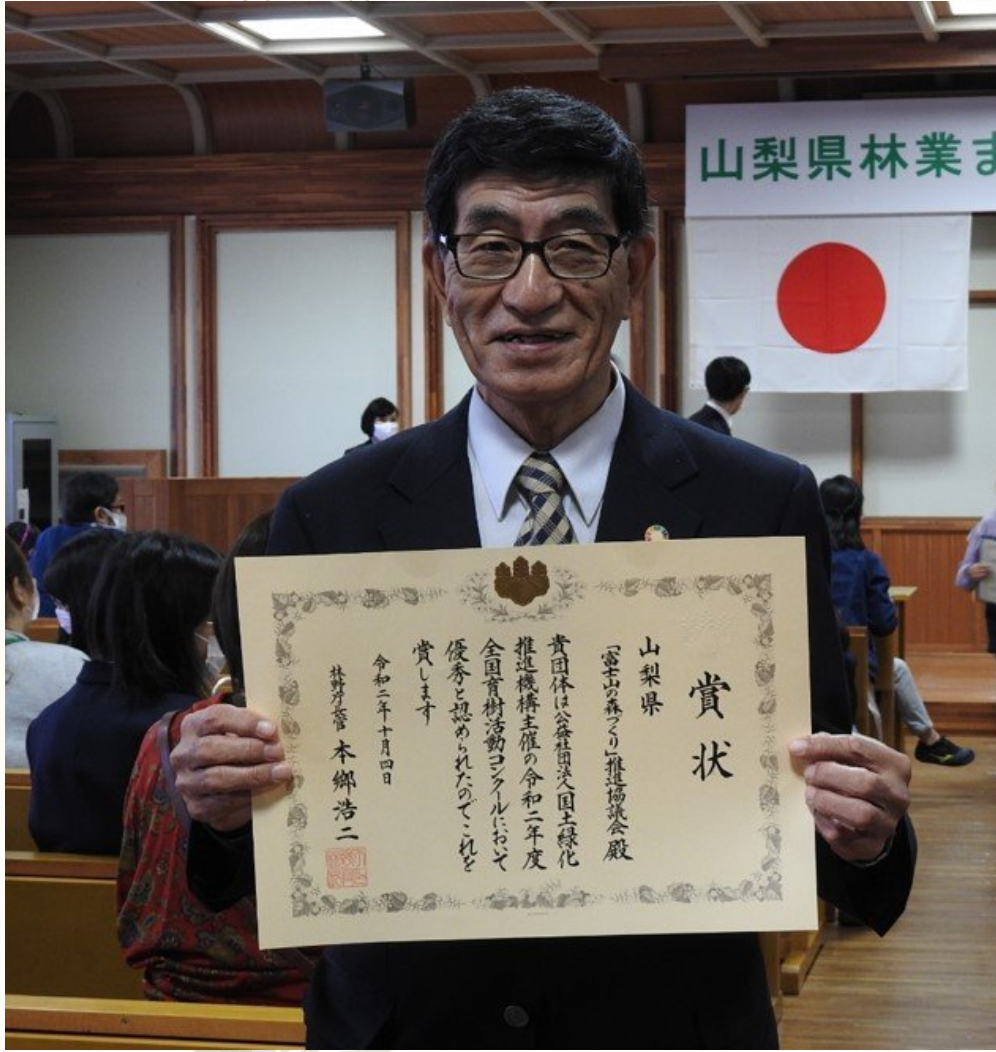 山梨県林業ま
賞状
山梨県
「富士山の森づくり」推進協議会殿
貴団体は公益社団法人国土緑化
推進機構主催の令和二年度
全国育樹活動コンクールにおいて
優秀と認められたのでこれを
賞します
令和二年十月四日
林野庁長官 本郷浩二